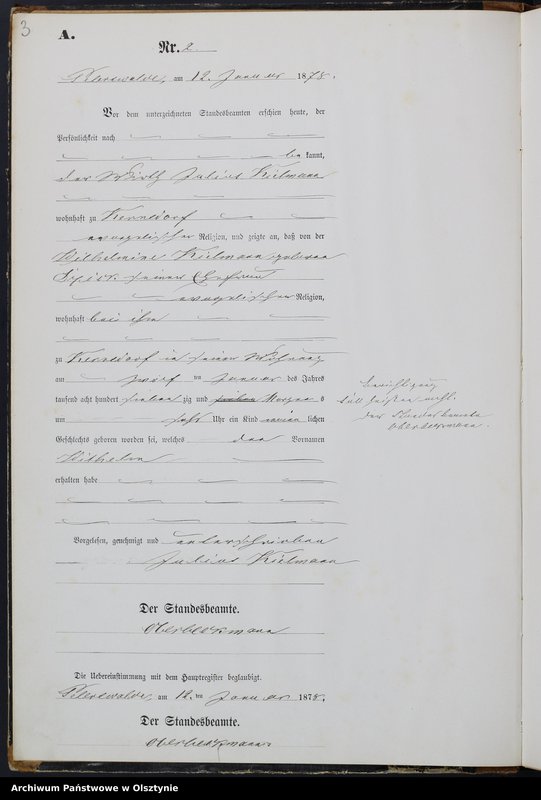 3
A.
Nr. 2
am 12. Januar 1878.
Vor dem unterzeichneten Standesbeamten erschien heute, der
Persönlichkeit nach
be kannt,
der Wirth Julius Kielmann
wohnhaft zu Kerndorf
evangelischer Religion, und zeigte an, daß von der
Wilhelmine Kielmann geborene
seiner Ehefrau
evangelischer Religion,
wohnhaft bei ihm
zu Kerndorf in seiner Wohnung
am Januar des Jahres
tausend acht hundert sieben zig und Morgens
um Uhr ein Kind männ lichen
Geschlechts geboren worden sei, welches den Vornamen
Wilhelm
erhalten habe
Berichtigung
soll heißen acht.
Der Standesbeamte
Oberbeckmann.
Vorgelesen, genehmigt und unterschrieben
Julius Kielmann
Der Standesbeamte.
Oberbeckmann
Die Uebereinstimmung mit dem Hauptregister beglaubigt.
am 12. ten Januar 1878.
Der Standesbeamte.
Oberbeckmann.
Archiwum Państwowe w Olsztynie